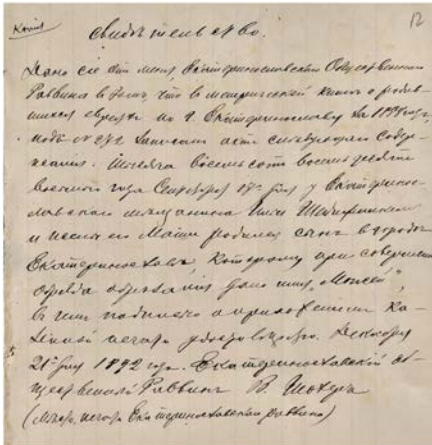 Копія
12
Свидѣтельство.
Дано сіе отъ меня, Екатеринославскаго Общественнаго
Раввина въ томъ, что въ метрической книгѣ о родив-
шихся евреяхъ по г. Екатеринославу за
подъ № записанъ актъ слѣдующаго содер-
жанія: Тысяча восемьсотъ восемьдесятъ
восьмого года Сентября 17 дня у Екатерино-
славскаго мѣщанина
и жены его Маши родился сынъ въ городѣ
Екатеринославѣ, которому при совершеніи
обряда обрѣзанія дано имя „Моисей“,
въ чемъ подписью и приложеніемъ ка-
зенной печати удостовѣряю. Декабря
21 дня 1892 года. Екатеринославскій об-
щественный Раввинъ В.
(М. печати Екатеринославскаго раввина)